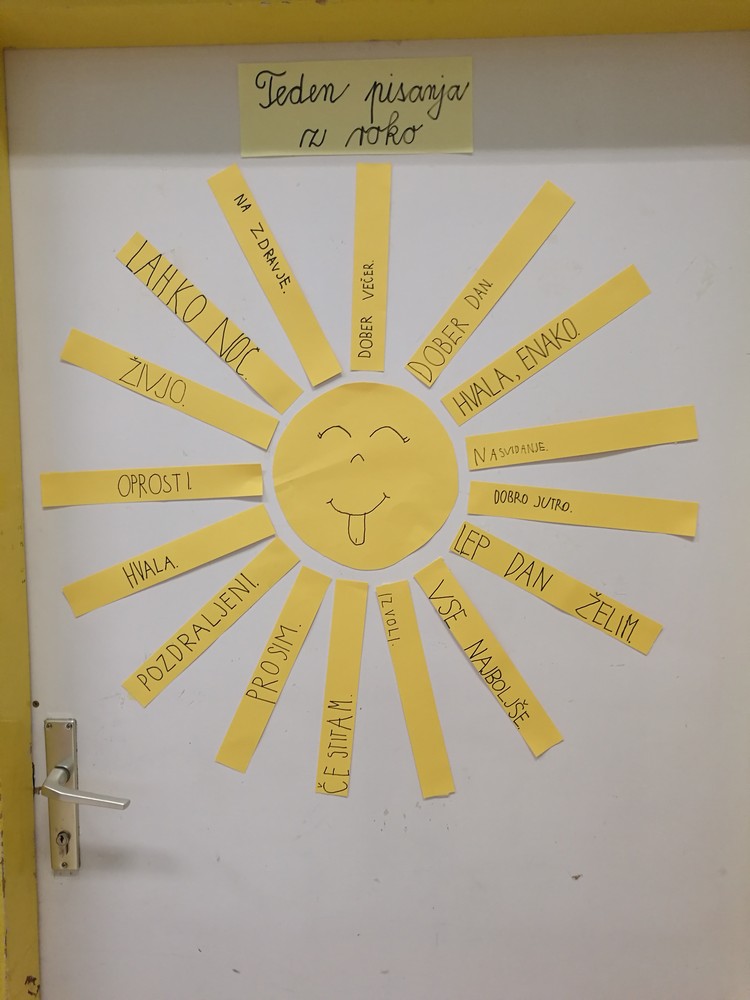 Teden pisanja
z roko
DOBER VEČER.
DOBER DAN.
HVALA, ENAKO.
NASVIDANJE.
DOBRO JUTRO.
LEP DAN ŽELIM.
VSE NAJBOLJŠE.
IZVOLI.
ČESTITAM.
PROSIM.
POZDRALJENI.
HVALA.
OPROSTI.
ŽIVJO.
LAHKO NOČ.
NA ZDRAVJE.